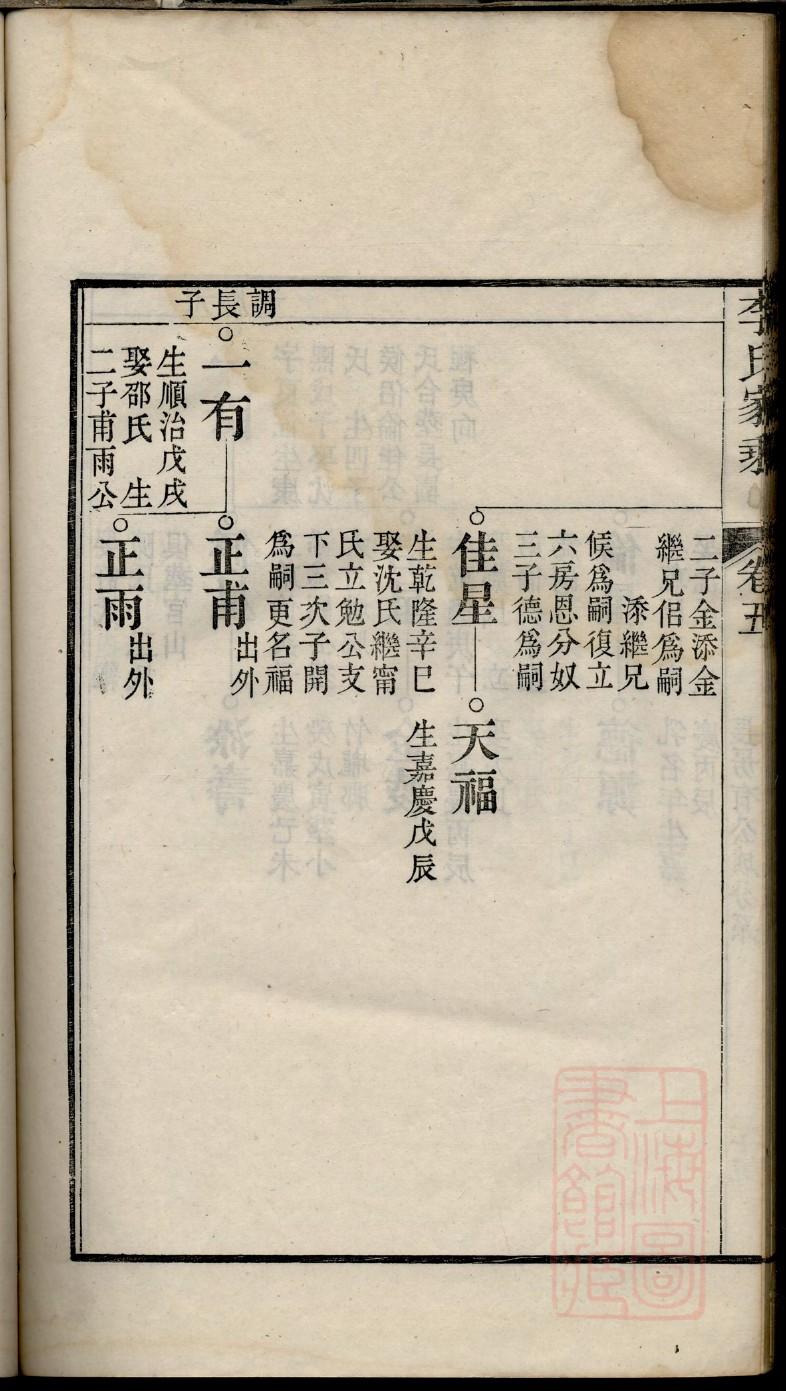 李氏家乘
卷五
二子金添金
繼兄侣爲嗣
添繼兄
候爲嗣復立
六房恩分奴
三子德爲嗣
佳星
天福
生乾隆辛巳
娶沈氏繼甯
氏立勉公支
下三次子開
爲嗣更名福
生嘉慶戊辰
調長子
一有
正甫
出外
生順治戊戌
娶邵氏 生
二子甫雨公
正雨
出外
上海圖
書館藏